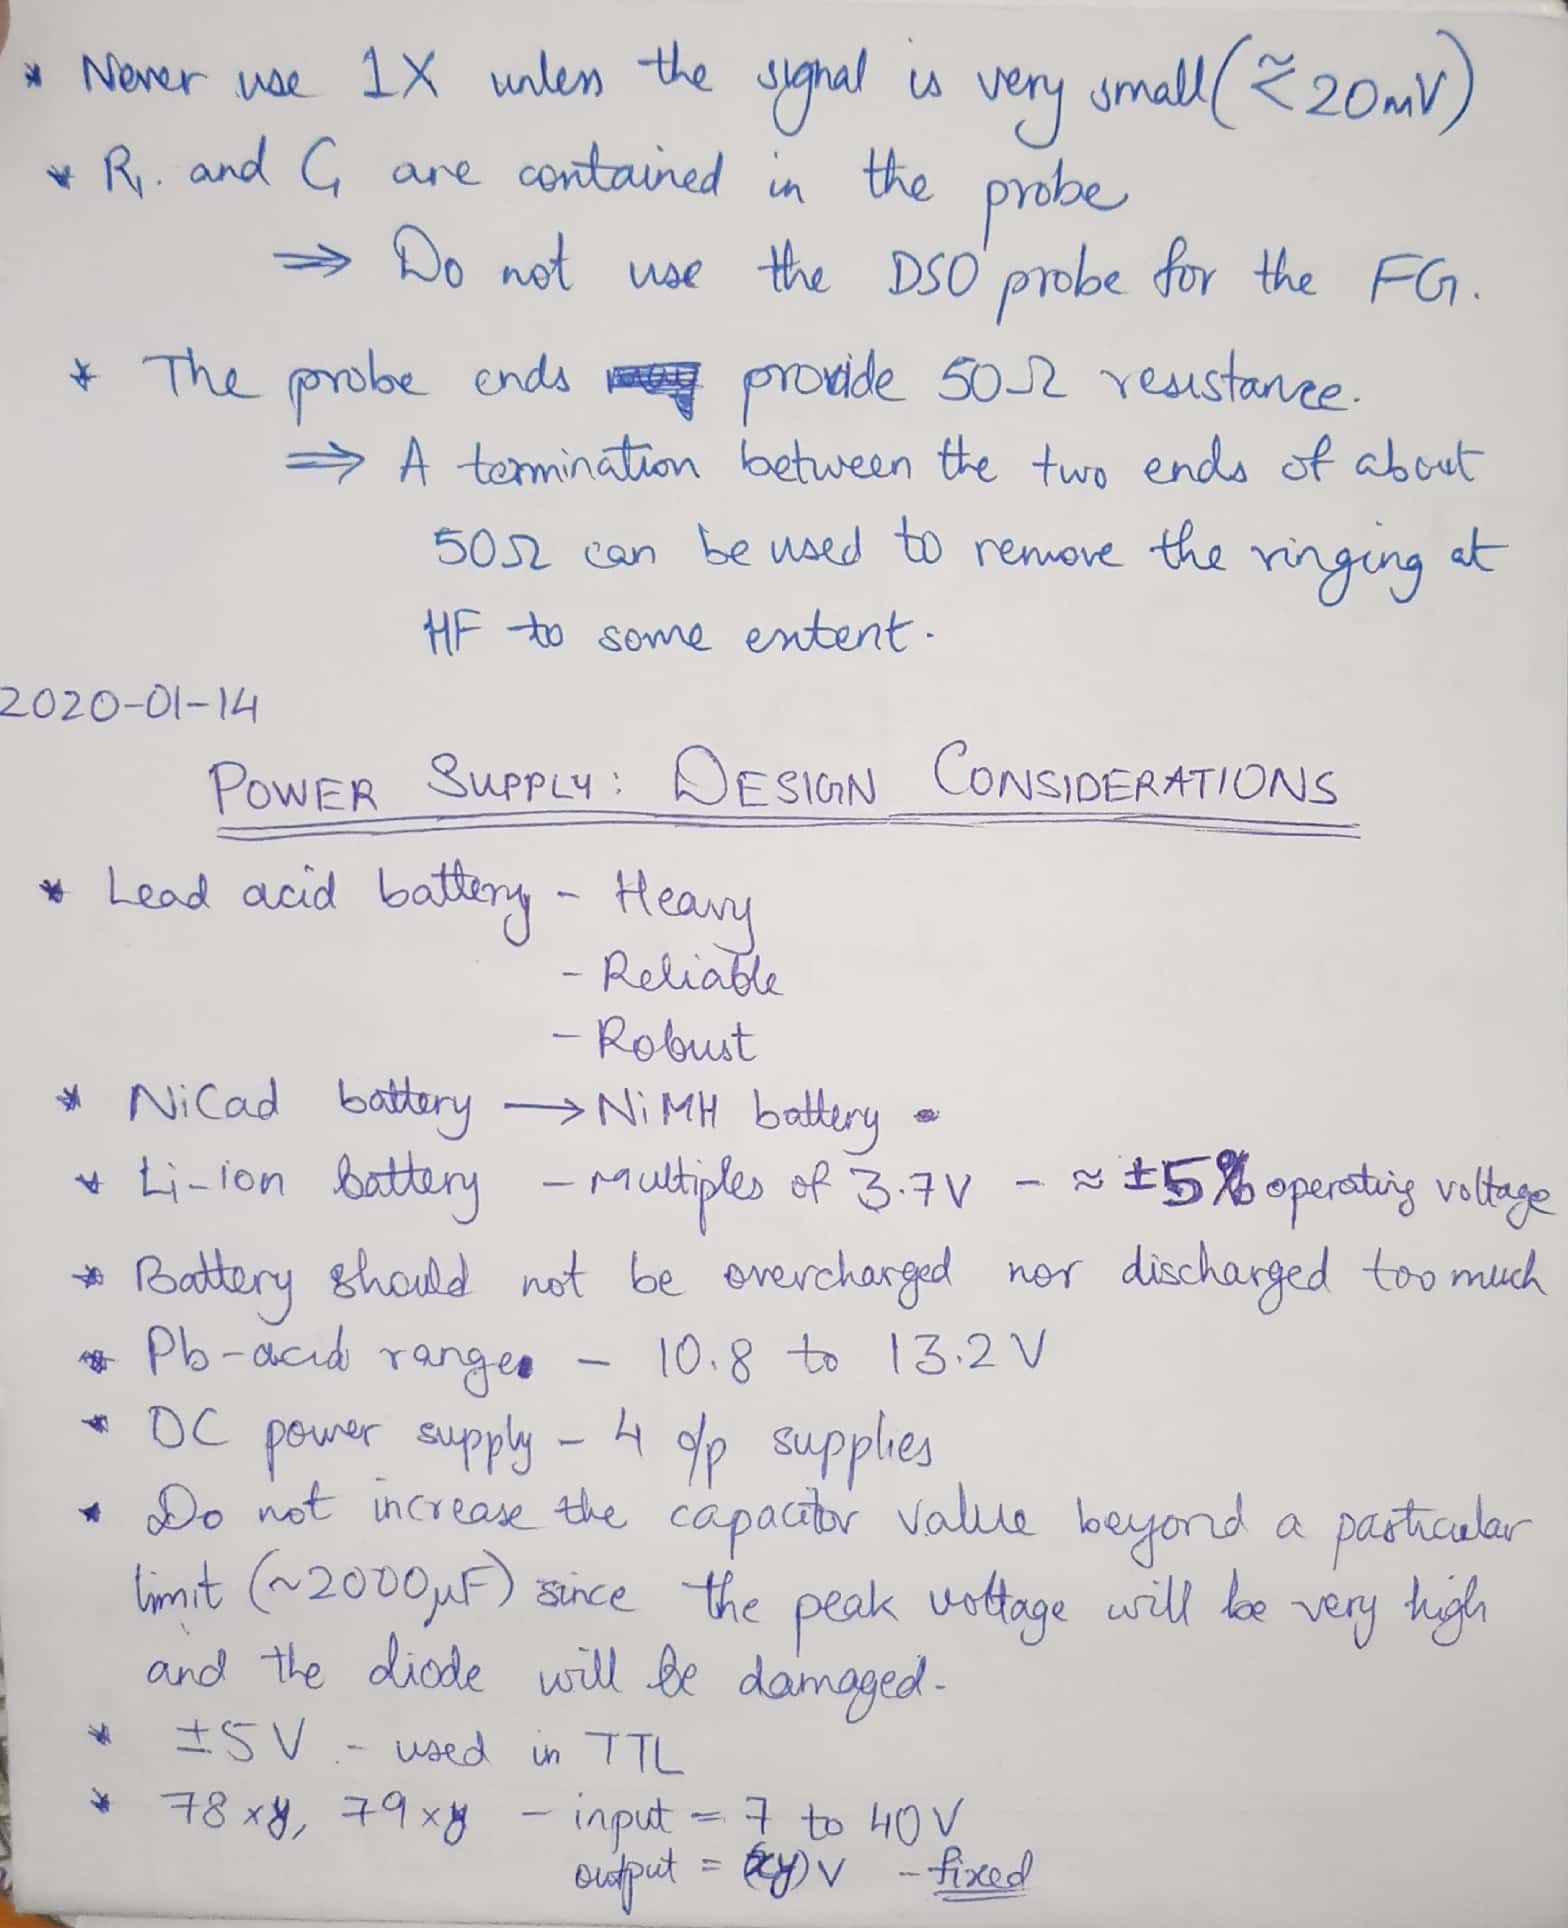 * Never use 1X unless the signal is very small (≈ 20mV)
* R₁ and C₁ are contained in the probe
⇒ Do not use the DSO probe for the FG.
* The probe ends provide 50Ω resistance.
⇒ A termination between the two ends of about
50Ω can be used to remove the ringing at
HF to some extent.
2020-01-14
POWER SUPPLY: DESIGN CONSIDERATIONS
* Lead acid battery - Heavy
- Reliable
- Robust
* NiCad battery → NiMH battery
* Li-ion battery - multiples of 3.7V - ≈ ±5% operating voltage
* Battery should not be overcharged nor discharged too much
* Pb-acid range - 10.8 to 13.2 V
* DC power supply - 4 o/p supplies
* Do not increase the capacitor value beyond a particular
limit (~2000μF) since the peak voltage will be very high
and the diode will be damaged.
* ±5V - used in TTL
* 78xy, 79xy - input = 7 to 40V
output = (xy)V - fixed